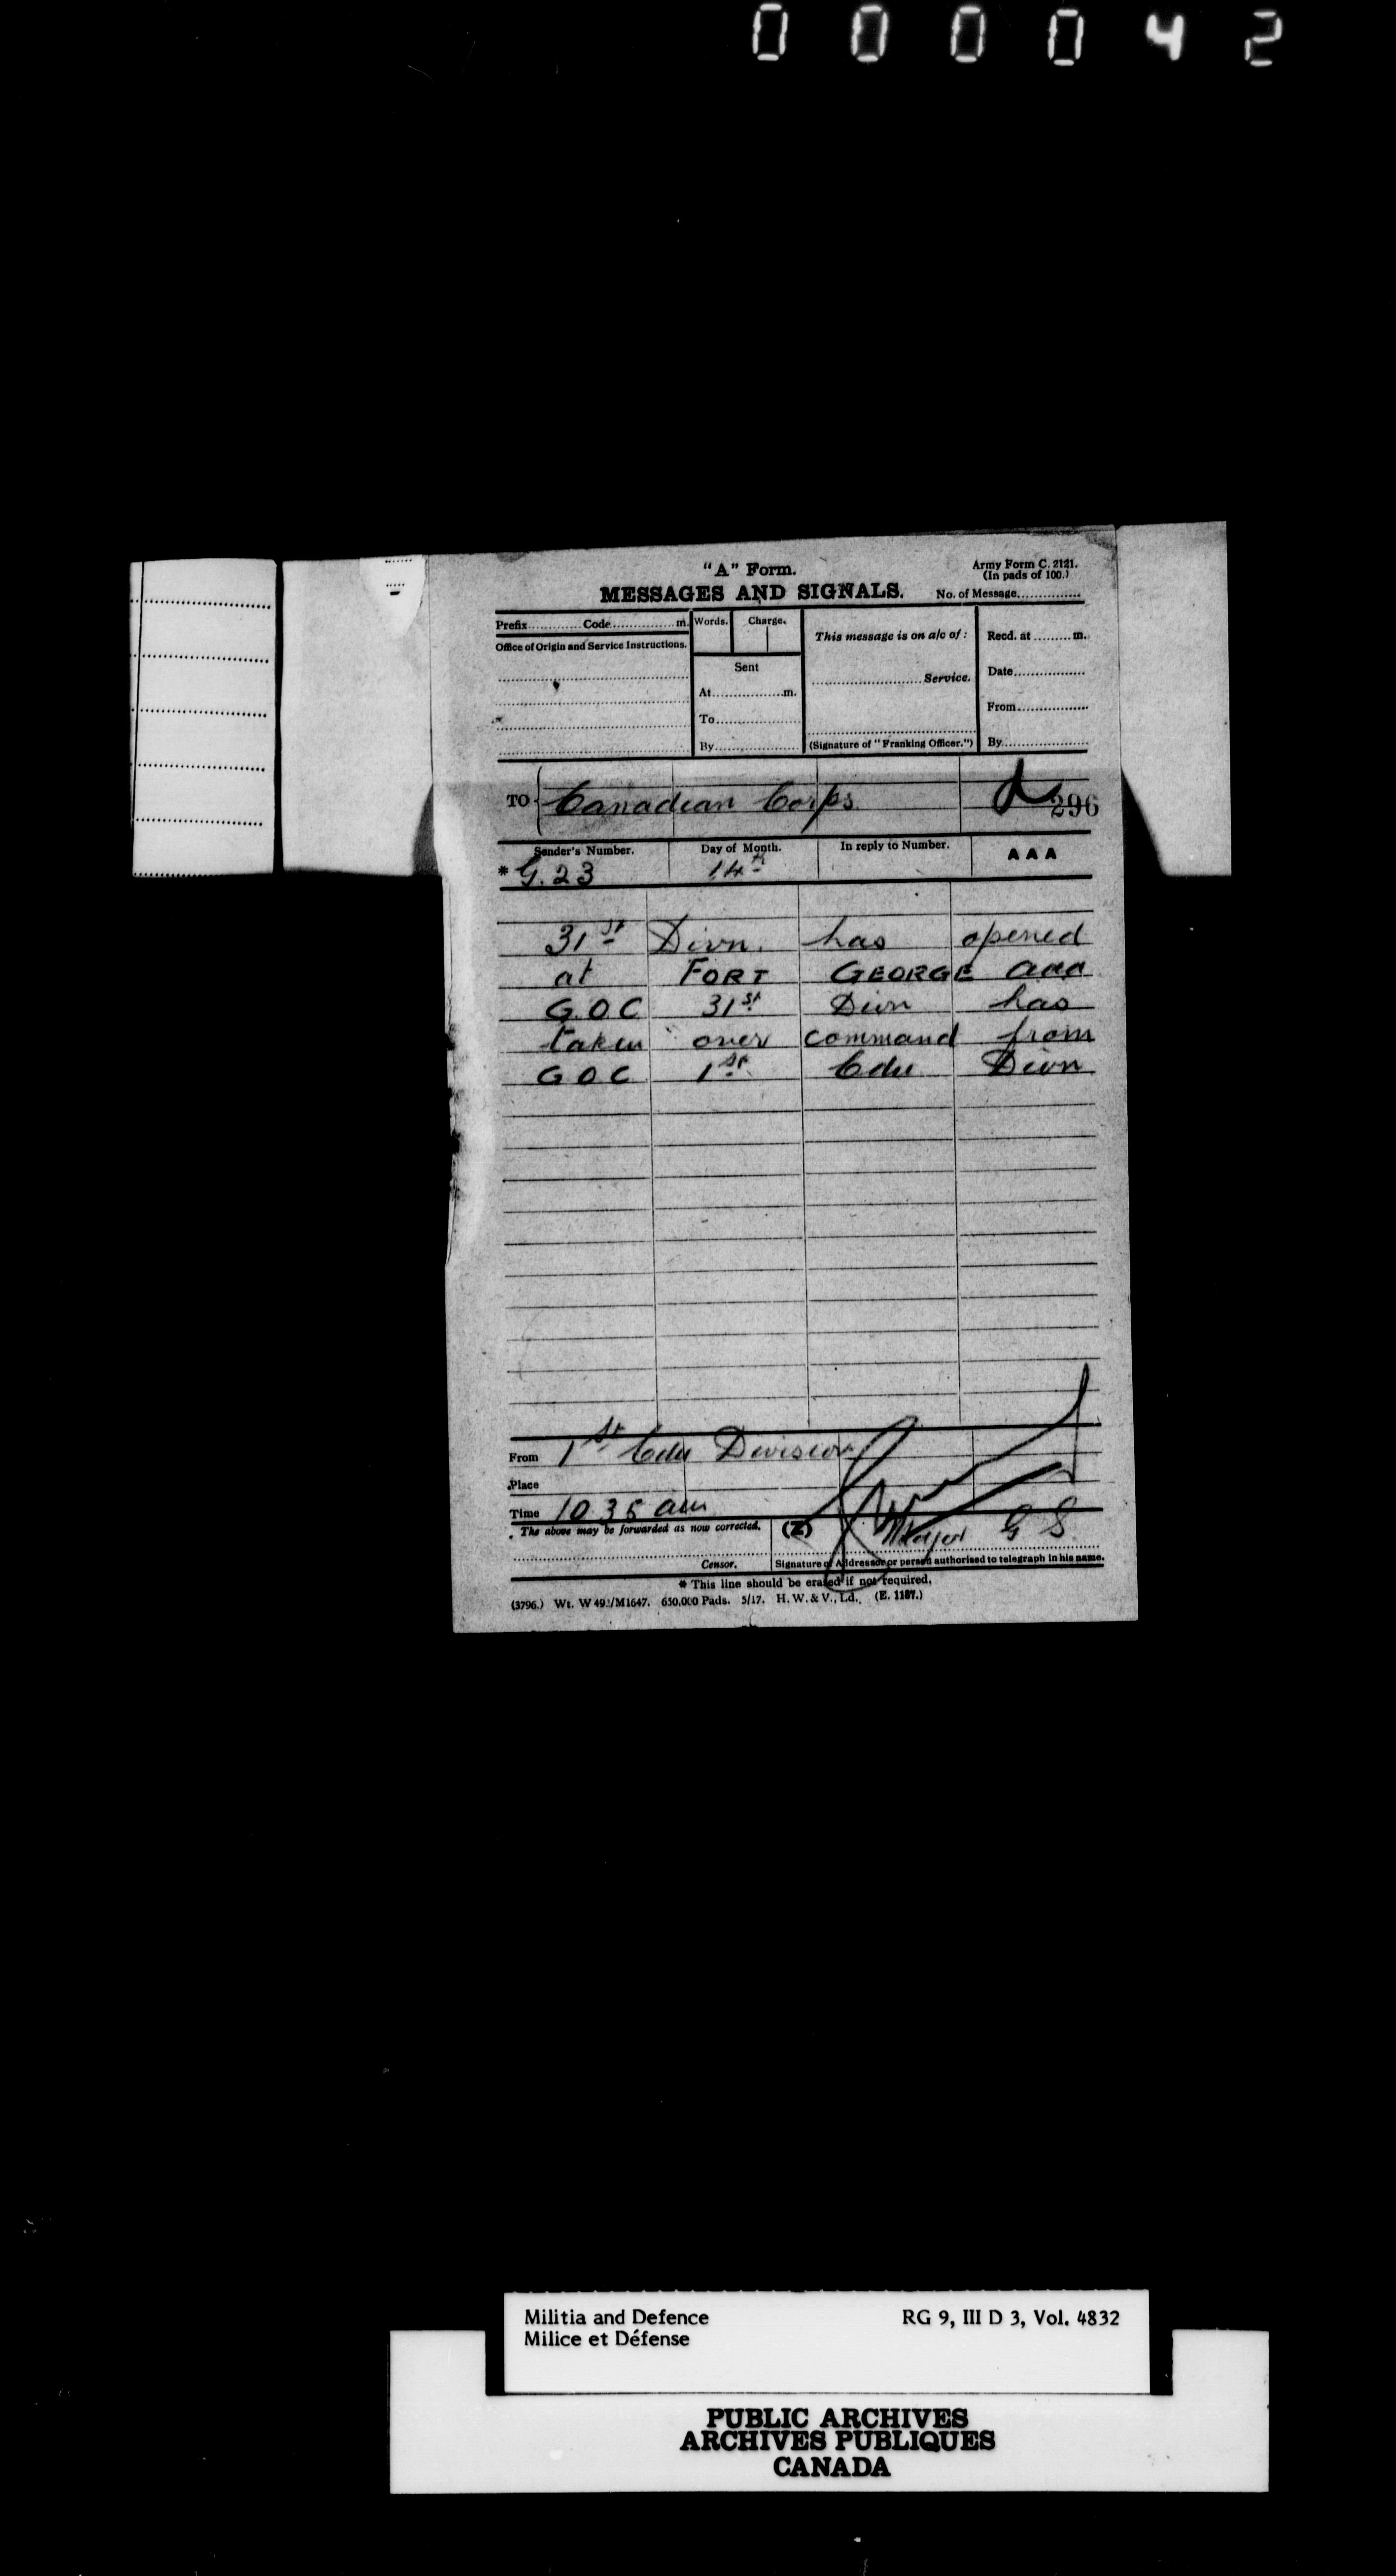 000042
"A" Form.
Army Form C. 2121.
(In pads of 100.)
MESSAGES AND SIGNALS.
No. of Message...............
Prefix............Code...............m.
Words.
Charge.
Office of Origin and Service Instructions.
Sent
At.................m.
To....................
By....................
This message is on a/c of :
........................Service.
(Signature of "Franking Officer.")
Recd. at .........m.
Date.................
From.................
By....................
TO Canadian Corps
296
Sender's Number.
Day of Month.
In reply to Number.
AAA
* G.23
14th
31st Divn. has opened
at FORT GEORGE aaa
G.O.C 31st Divn has
taken over command from
G O C 1st Cdn Divn
From 1st Cdn Division
Place
Time 10 35 am
The above may be forwarded as now corrected.
(Z)
Major G S
Censor.
Signature of Addressor or person authorised to telegraph in his name.
* This line should be erased if not required.
(3796.) Wt. W 492/M1647. 650,000 Pads. 5/17. H. W. & V., Ld. (E. 1187.)
Militia and Defence
Milice et Défense
RG 9, III D 3, Vol. 4832
PUBLIC ARCHIVES
ARCHIVES PUBLIQUES
CANADA